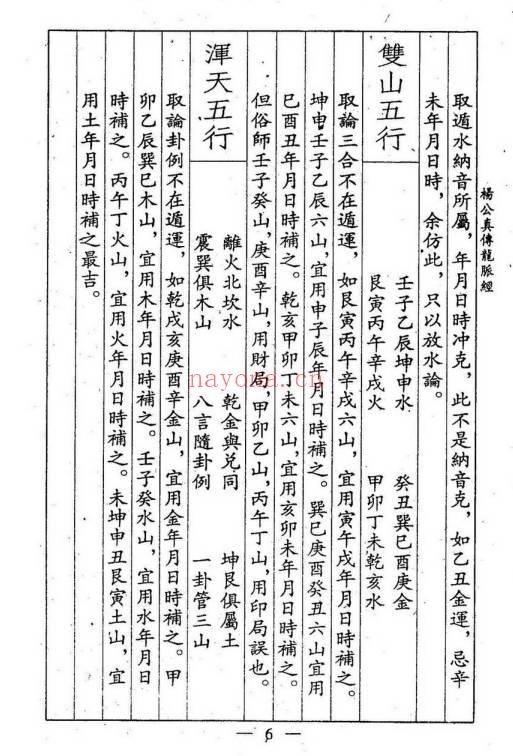 楊公真傳龍脈經
取遁水納音所屬,年月日時冲克,此不是納音克,如乙丑金運,忌辛
未年月日時,余仿此,只以放水論。
雙山五行
壬子乙辰坤申水 癸丑巽巳酉庚金
艮寅丙午辛戌火 甲卯丁未乾亥水
取論三合不在遁運,如艮寅丙午辛戌六山,宜用寅午戌年月日時補之。
坤申壬子乙辰六山,宜用申子辰年月日時補之。巽巳庚酉癸丑六山宜用
巳酉丑年月日時補之。乾亥甲卯丁未六山,宜用亥卯未年月日時補之。
但俗師壬子癸山,庚酉辛山,用財局,甲卯乙山,丙午丁山,用印局誤也。
渾天五行
離火北坎水 乾金與兑同 坤艮俱屬土
震巽俱木山 八言隨卦例 一卦管三山
取論卦例不在遁運,如乾戌亥庚酉辛金山,宜用金年月日時補之。甲
卯乙辰巽巳木山,宜用木年月日時補之。壬子癸水山,宜用水年月日
時補之。丙午丁火山,宜用火年月日時補之。未坤申丑艮寅土山,宜
用土年月日時補之最吉。
— 6 —
nayona.cn